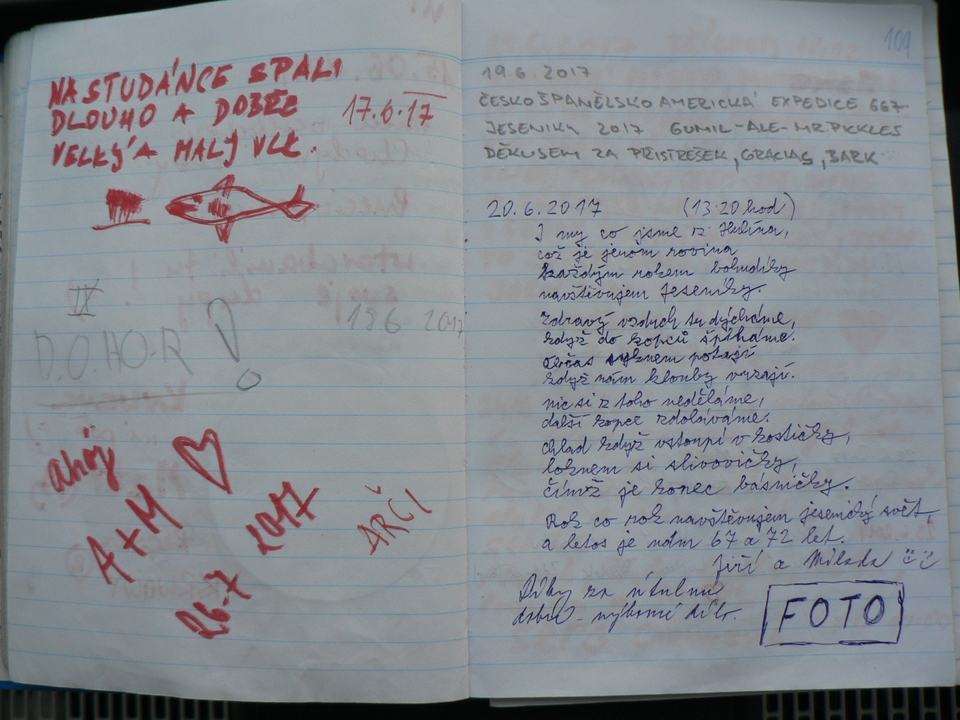 NA STUDÁNCE SPALI
DLOUHO A DOBŘE 17.6.17
VELKÝ A MALÝ VLK.
IX
D.O.HO-R !
18 6 2017
ahoj
A+M
2017
26-7
ARČI
101
19.6.2017
ČESKO ŠPANĚLSKO AMERICKÁ EXPEDICE 667-
JESENIKY 2017 GUMIL-ALE-MR.PICKLES
DĚKUJEM ZA PŘISTREŠEK, GRACIAS, BARK
20.6.2017 (13:20 hod)
I my co jsme z Hulína,
což je jenom rovina
každým rokem bohudíky
navštěvujem Jeseníky.
Zdravý vzduch tu dýcháme,
když do kopců šplháme.
Občas syknem potají
když nám klouby vrzají.
nic si z toho neděláme,
další kopec zdoláváme.
Chlad když vstoupí v kostičky,
loknem si slivovičky,
čímž je konec básničky.
Rok co rok navštěvujem jesenický svět,
a letos je nám 67 a 72 let.
Jiří a Milada
Díky za útulnu
dobrá - výborné dílo.
FOTO